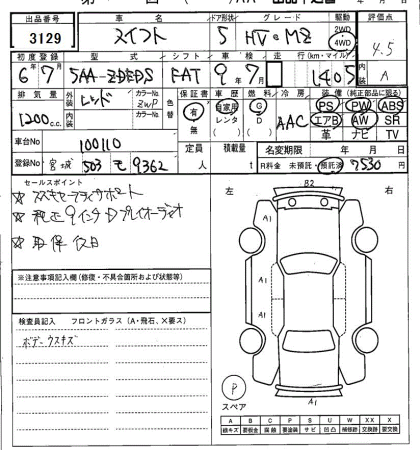 出品番号 車名 ドア形状 グレード 駆動 評価点
3129 スイフト 5 HV・MZ 2WD 4WD 4.5
初度登録 型式 シフト 車検 走行(km・マイル) 装備(純正部品に限る)
6年7月 5AA-ZDEDS FAT 9年7月 1405 PS PW ABS A
排気量 外装 カラーNo. 色替 保証書 車歴 燃料 冷房 エアB AW SR
1200c.c. レッド ZWP 有 無 自家用 レンタ G D AAC 革 ナビ TV
内装 カラーNo.
車台No. 100110 定員 積載量 名変期限 年 月 日
登録No. 宮城 503 も 9362 人 t R料金 未預託・預託済 7530 円
セールスポイント
☆ スズキセーフティサポート
☆ 純正9インチDプレイオーディオ
☆ 取保後日
※注意事項記入欄(修復・不具合箇所および状態等)
検査員記入 フロントガラス(A・飛石、X要ス)
ボデーウスキズ
左 右
B2
A1
A1
A1
A1
P
スペア
A B C P S U W X XX
線キズ 要板金 腐蝕 要塗装 サビ 凹凸 補修跡 交換跡 要交換